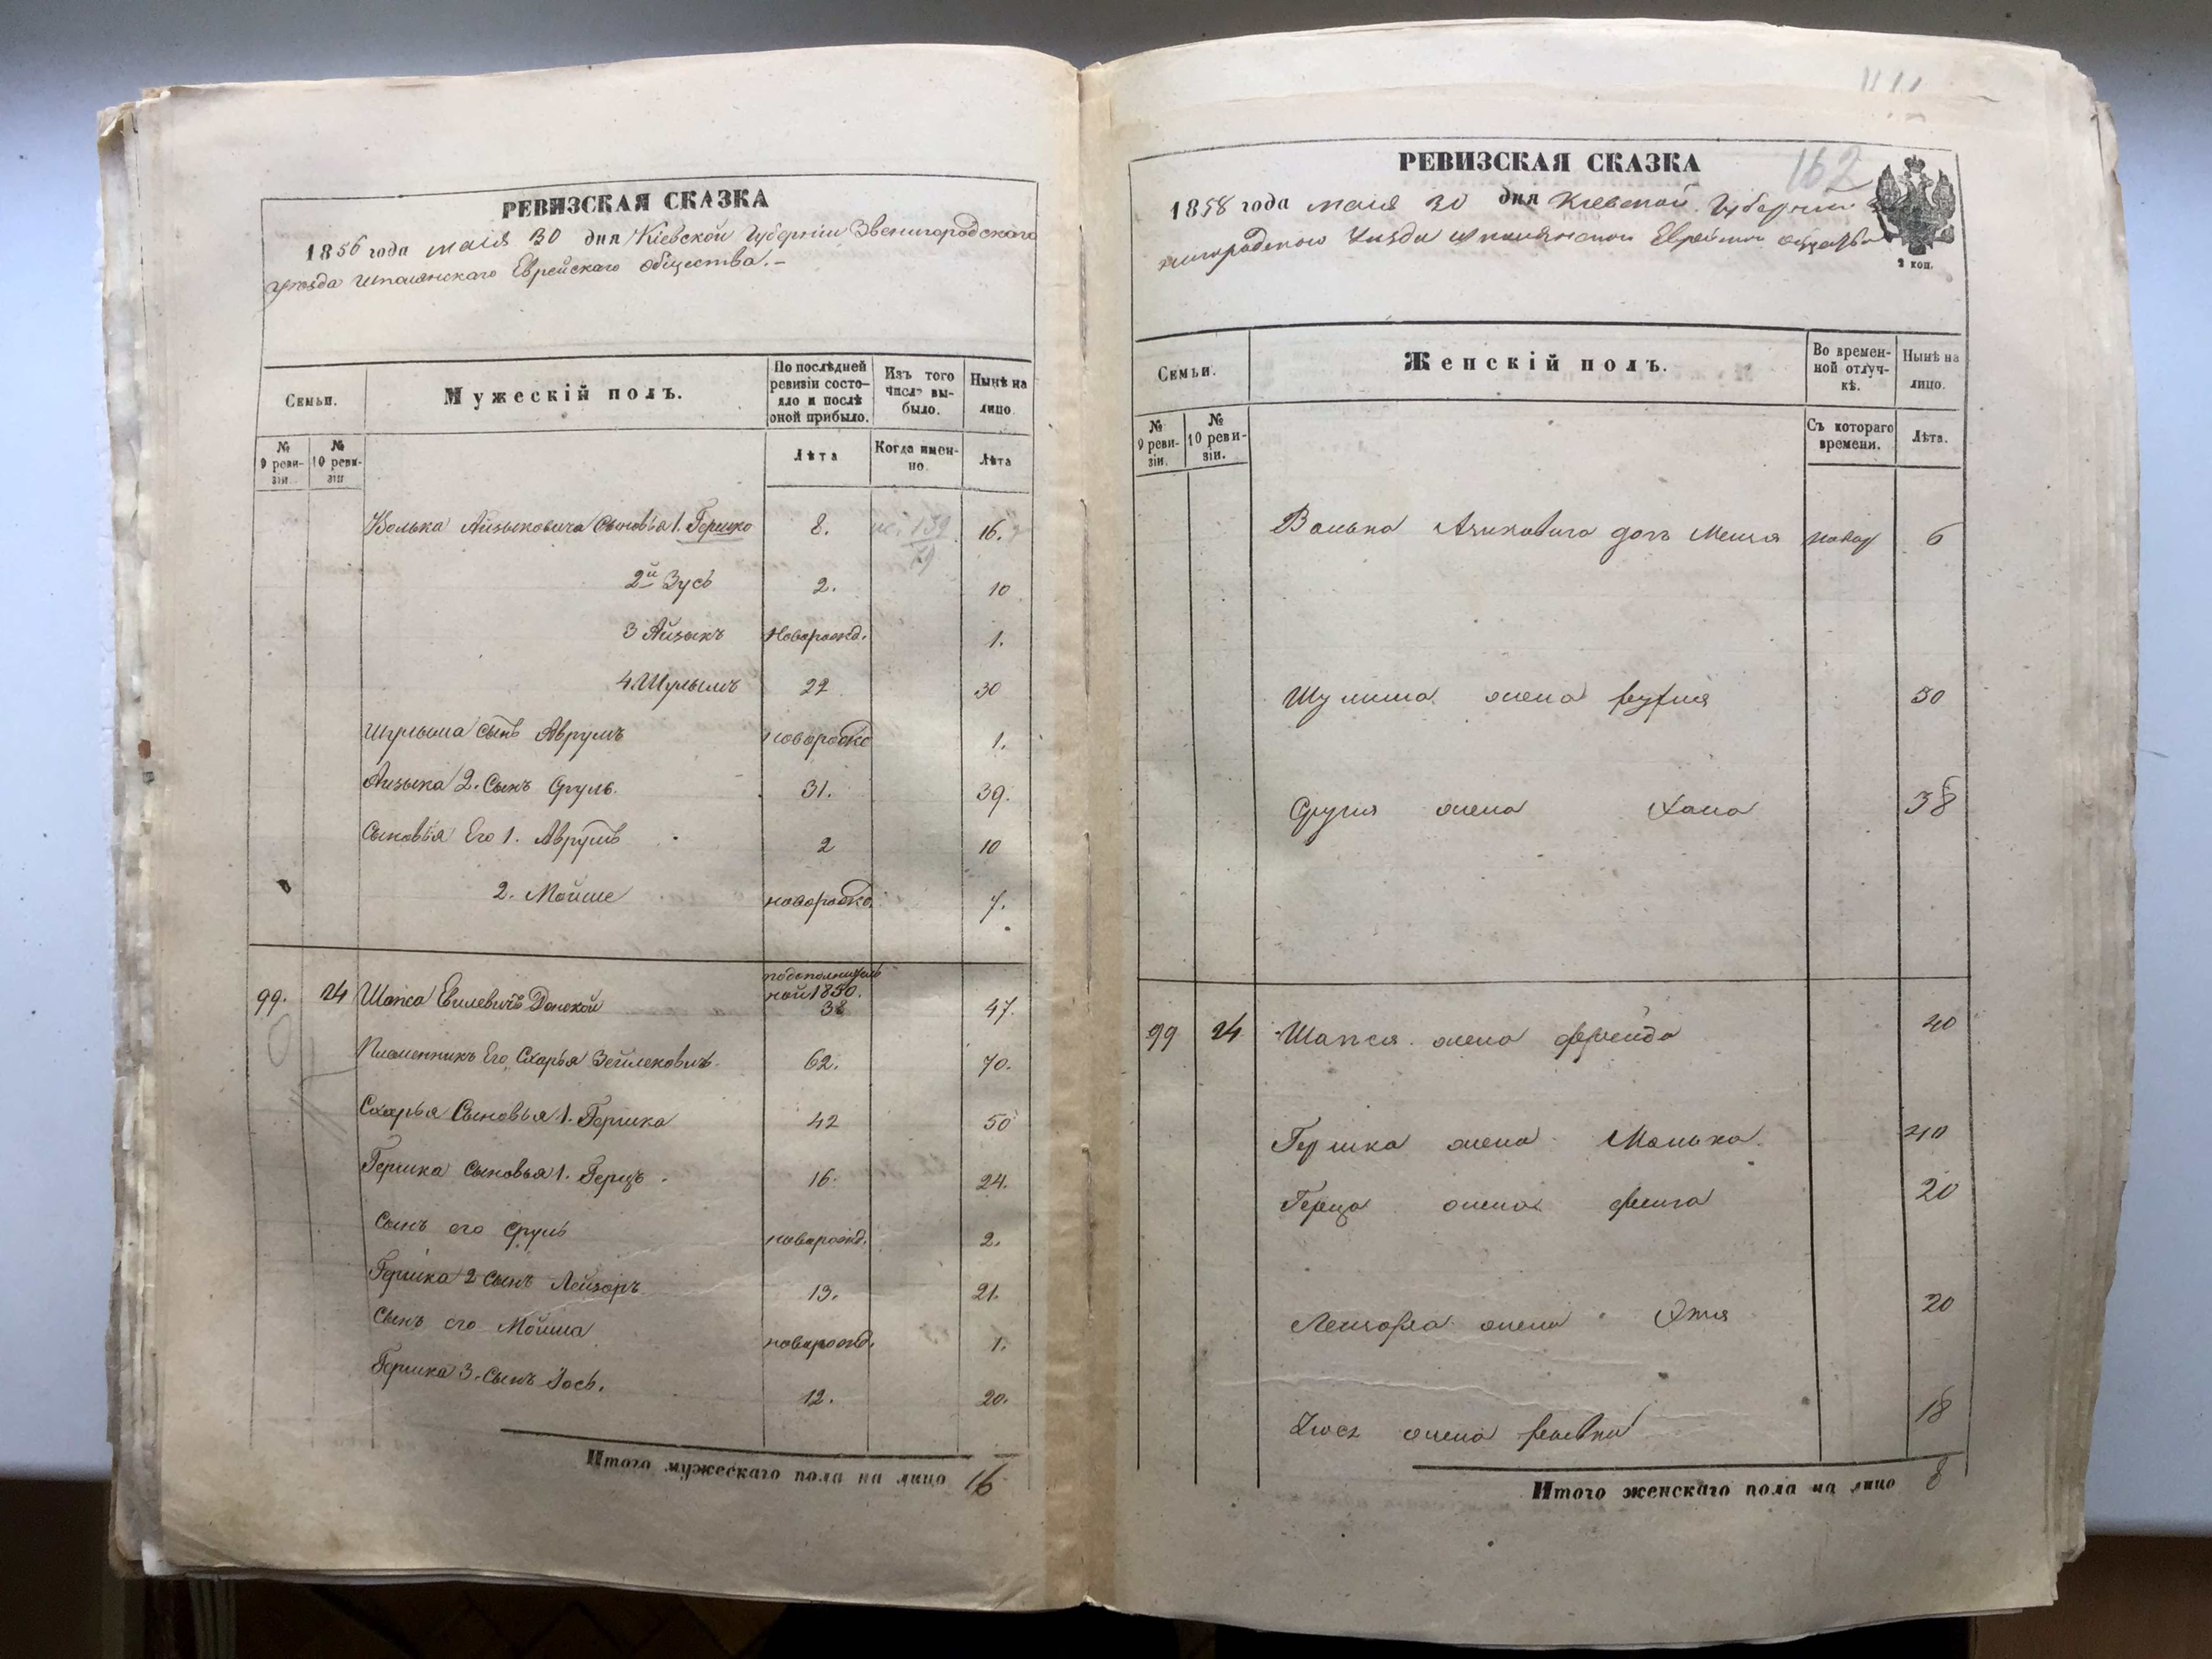 РЕВИЗСКАЯ СКАЗКА
1858 года мая 30 дня Кіевской Губерніи Звенигородскаго
уѣзда Шполянскаго Еврейскаго общества.-
Семьи.
Мужескій полъ.
По послѣдней ревизіи состояло и послѣ оной прибыло.
Изъ того числа выбыло.
Нынѣ на лицо.
№ 9 ревизіи.
№ 10 ревизіи
Лѣта
Когда именно.
Лѣта
Волька Айзыковича Сыновья 1. Гершко 8. 16.
2й Зусь 2. 10
3 Айзыкъ Новорожд. 1.
4 Шулымъ 22 30
Шулыма сынъ Аврумъ новорожд 1.
Айзыка 2. Сынъ Сруль. 31. 39.
Сыновья Его 1. Аврумъ 2 10
2. Мойше новорожд. 7.
99. 24 Шапса Евилевичъ Донской по дополнитель ной 1850. 38 47.
Племенникъ Его, Схарья Зейлековичъ. 62. 70.
Схарья Сыновья 1. Гершка 42 50
Гершка Сыновья 1. Герцъ. 16. 24.
Сынъ его Сруль новорожд. 2.
Гершка 2 сынъ Лейзоръ 13. 21.
Сынъ его Мойша новорожд. 1.
Гершка 3. Сынъ Іось. 12. 20.
Итого мужескаго пола на лицо 16
162
РЕВИЗСКАЯ СКАЗКА
1858 года мая 30 дня Кіевской Губерніи
нигородскаго уѣзда Шполянскаго Еврейскаго общества
2 коп.
Семьи.
Женскій полъ.
Во временной отлучкѣ.
Нынѣ на лицо.
№ 9 ревизіи.
№ 10 ревизіи.
Съ котораго времени.
Лѣта.
Волька Азиковича дочь новор 6
Шулима жена 30
Сруля жена Хана 38
99 24 Шапся жена Фрейда 40
Гершка жена Малька 40
Герца жена Фейга 20
Лейзора жена 20
жена 18
Итого женскаго пола на лицо 8